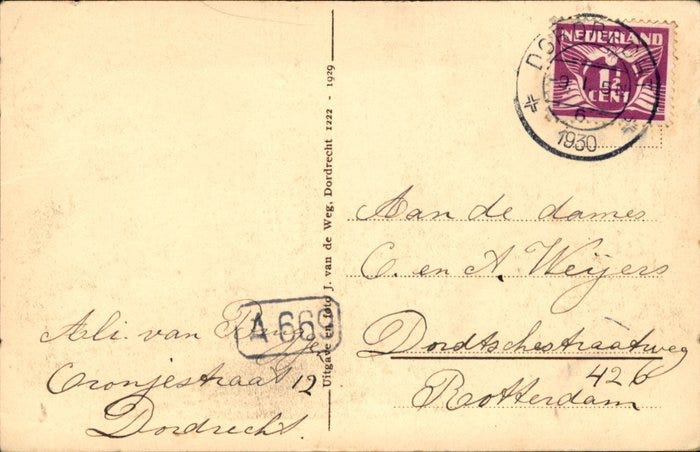 NEDERLAND
1½
CENT
DORDRECHT
1930
Uitgave en foto J. van de Weg, Dordrecht 1222 - 1929
Aan de dames
C. en A. Weijers
Dordtschestraatweg
426
Rotterdam
A 669
Ali van
Oranjestraat 12
Dordrecht.